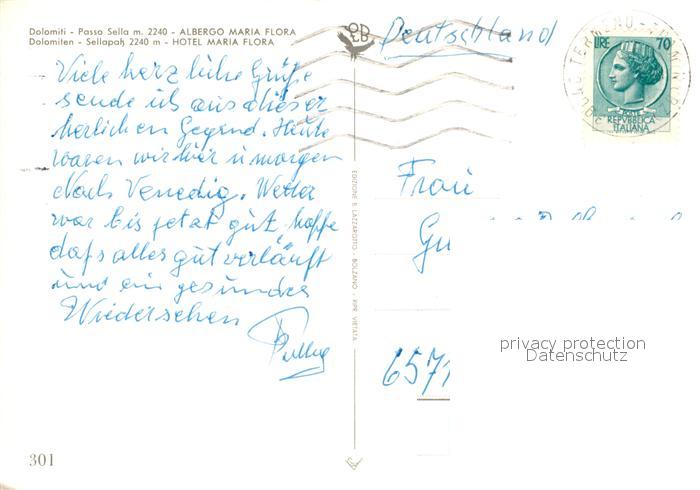 Dolomiti - Passo Sella m. 2240 - ALBERGO MARIA FLORA
Dolomiten - Sellapaß 2240 m - HOTEL MARIA FLORA
Viele herzliche Grüße
sende ich aus dieser
herlichen Gegend. Heute
waren wir hier u morgen
Nach Venedig. Wetter
war bis jetzt gut, hoffe
dass alles gut verläuft
und ein gesundes
Wiedersehen
301
EDIZIONE S. LAZZAROTTO - BOLZANO - RIPR. VIETATA
Deutschland
LIRE 70
POSTE
REPVBBLICA
ITALIANA
Frau
Gu
6571
privacy protection
Datenschutz